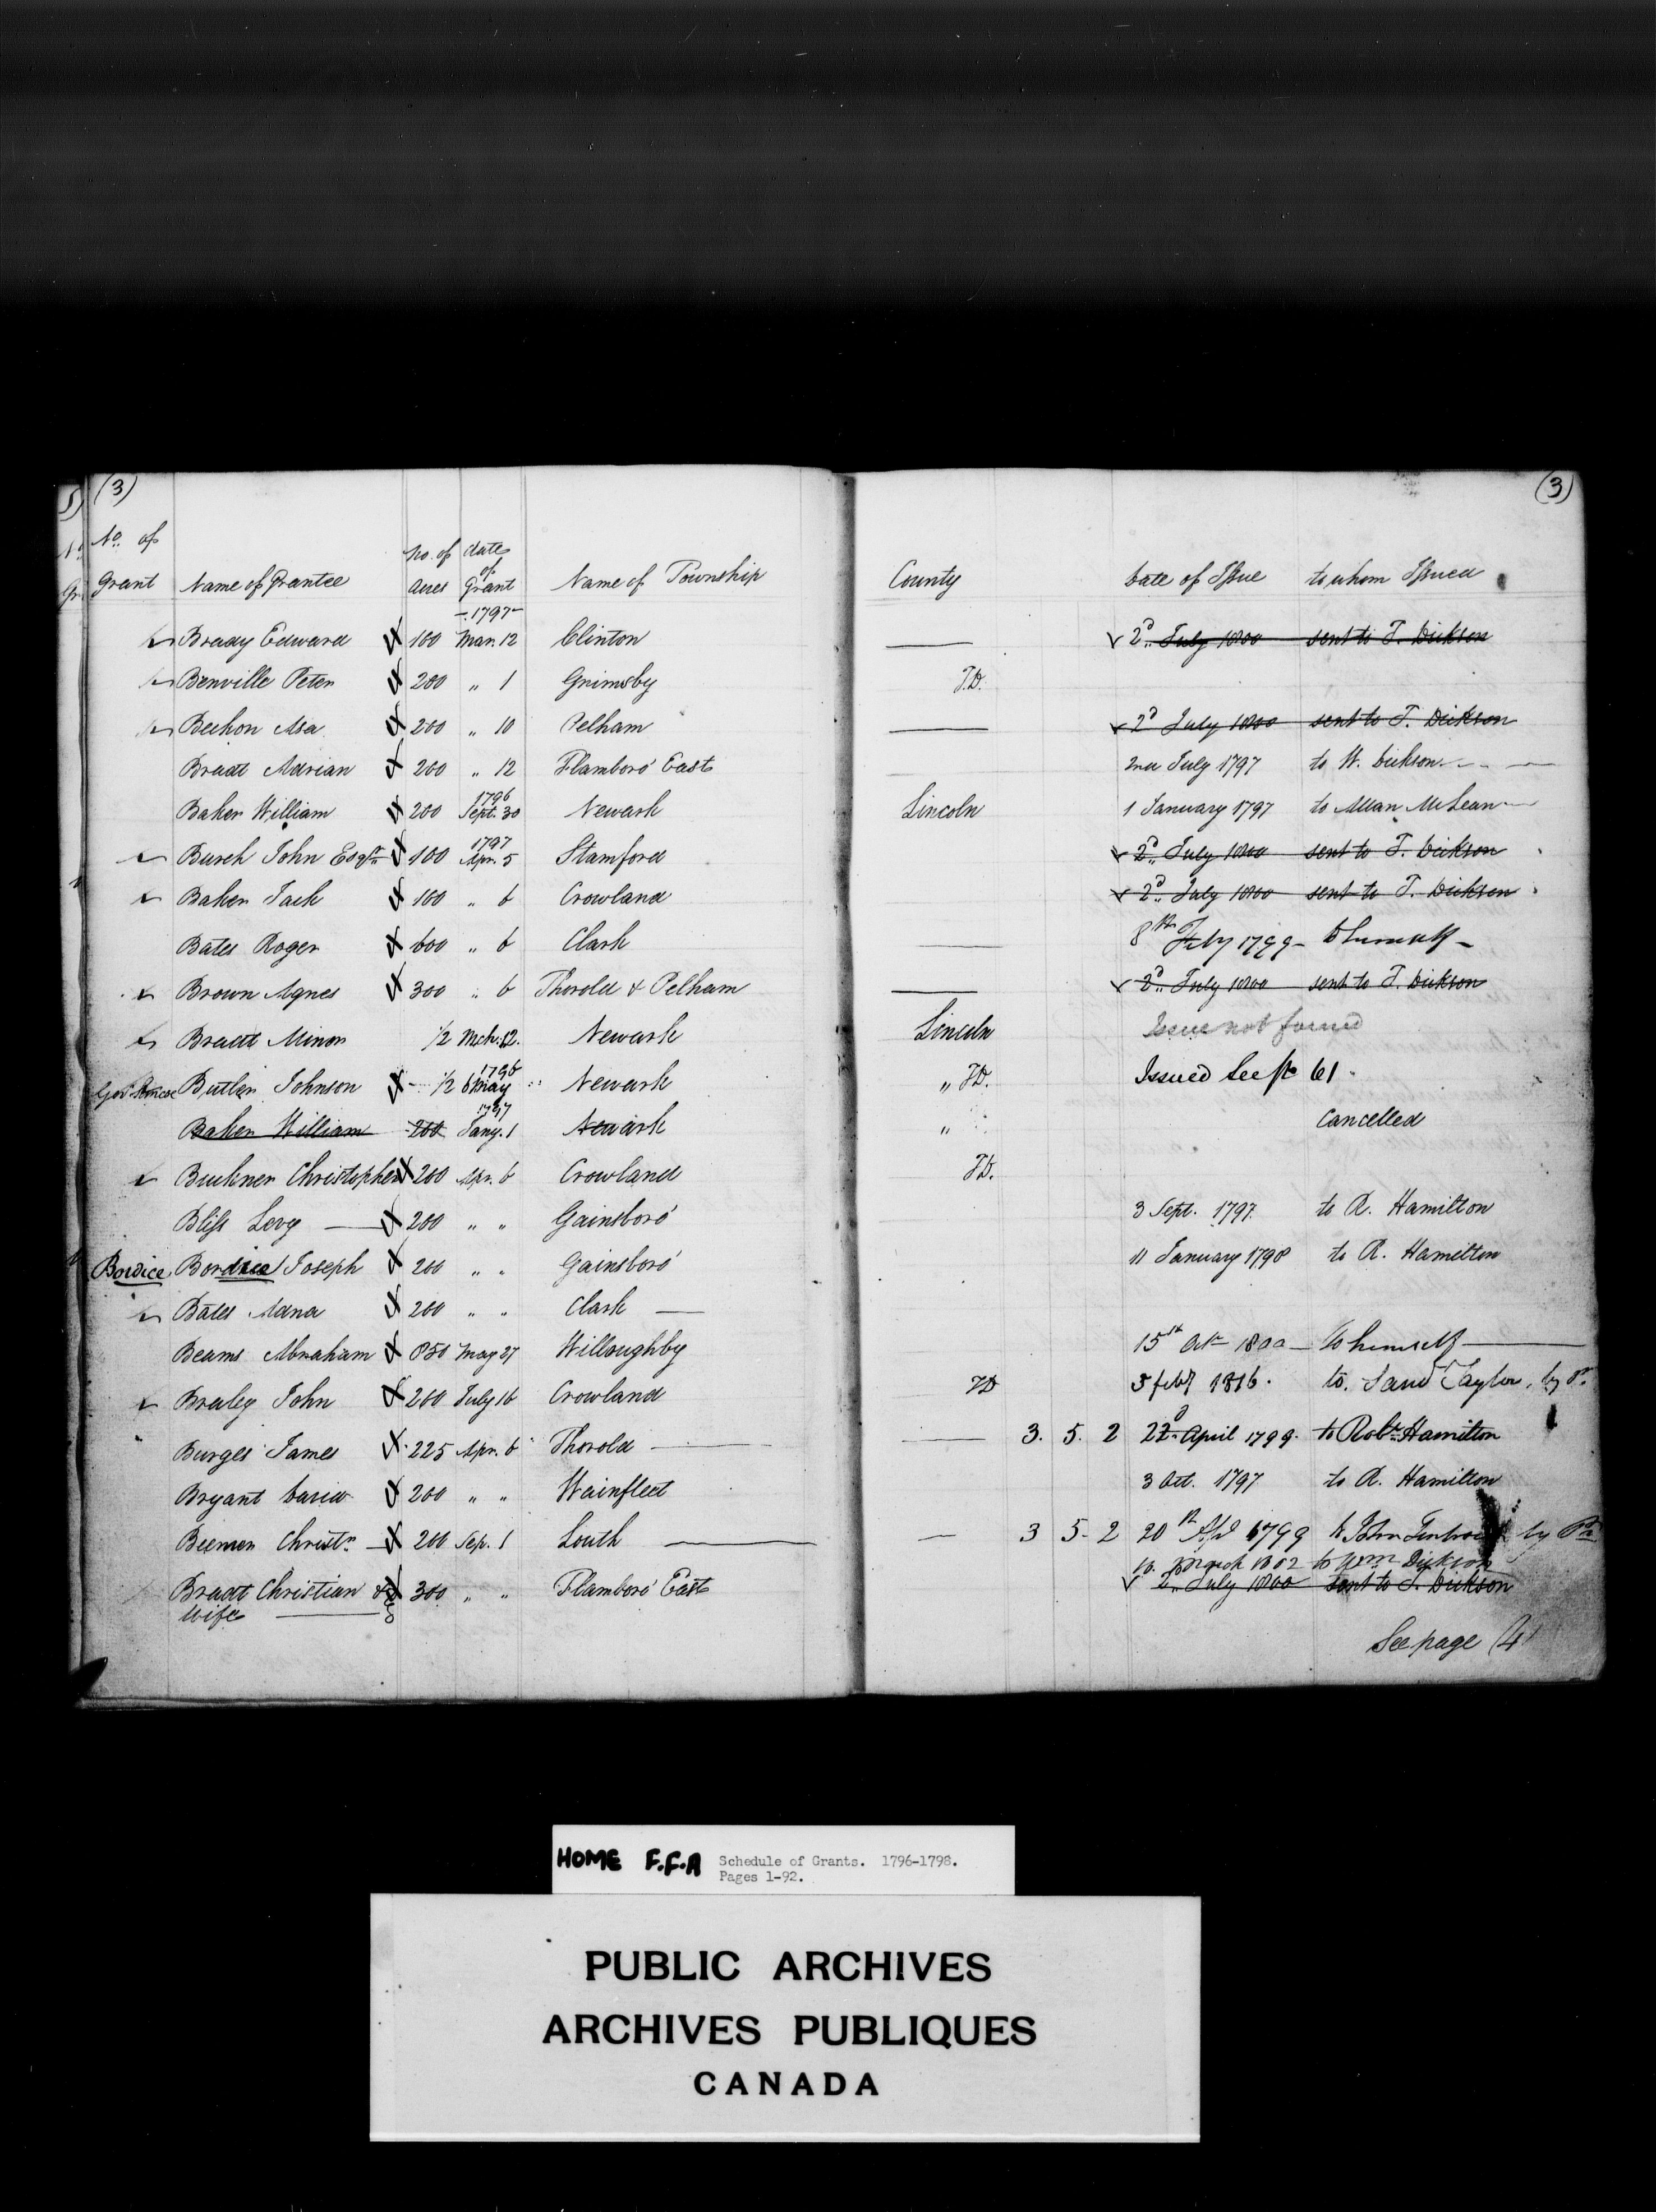 (3) (3)
No. of
Grant Name of Grantee No. of Acres date of Grant Name of Township County Date of Issue to whom Issued
- 1797 -
Brady Edward 100 Mar. 12 Clinton — 2d July 1800 sent to T. Dickson
Benville Peter 200 " 1 Grimsby T.D.
Beehon Asa 200 " 10 Pelham — 2d July 1800 sent to T. Dickson
Bradt Adrian 200 " 12 Flamboro' East 2nd July 1797 to W. Dickson
Baker William 200 1796 Sept. 30 Newark Lincoln 1 January 1797 to Allan McLean
Burch John Esqr 100 1797 Apr. 5 Stamford 2d July 1800 sent to T. Dickson
Baker Jack 100 " 6 Crowland 2d July 1800 sent to T. Dickson
Bates Roger 600 " 6 Clark — 8th Feby 1799 - to himself -
Brown Agnes 300 " 6 Thorold & Pelham — 2d July 1800 sent to T. Dickson
Bradt Minor 1/2 Mch. 12. Newark Lincoln Issue not found
Butler Johnson 1/2 6 May 1796 Newark " T.D. Issued See p 61
Baker William 200 1797 Jany. 1 Newark " Cancelled
Buckner Christopher 200 Apr. 6 Crowland T.D.
Bliss Levy 200 " " Gainsboro' 3 Sept. 1797 to R. Hamilton
Bordice Joseph 200 " " Gainsboro' 11 January 1798 to R. Hamilton
Bordice
Bates Adna 200 " " Clark —
Beams Abraham 850 May 27 Willoughby 15th Oct 1800 - to himself
Braley John 200 July 16 Crowland T.D 5 feby 1816. to. Saml Taylor, by
Burges James 225 Apr. 6 Thorold — 3. 5. 2 22d April 1799. to Robt Hamilton
Bryant David 200 " " Wainfleet 3 Oct. 1797 to R. Hamilton
Beemer Christn 200 Sep. 1 Louth — 3 5- 2 20th Apl 1799 to John by
10. March 1802 to Wm Dickson
Bradt Christian & 300 " " Flamboro' East 2. July 1800 sent to T. Dickson
Wife
See page (4)
HOME F.F.A Schedule of Grants. 1796-1798.
Pages 1-92.
PUBLIC ARCHIVES
ARCHIVES PUBLIQUES
CANADA